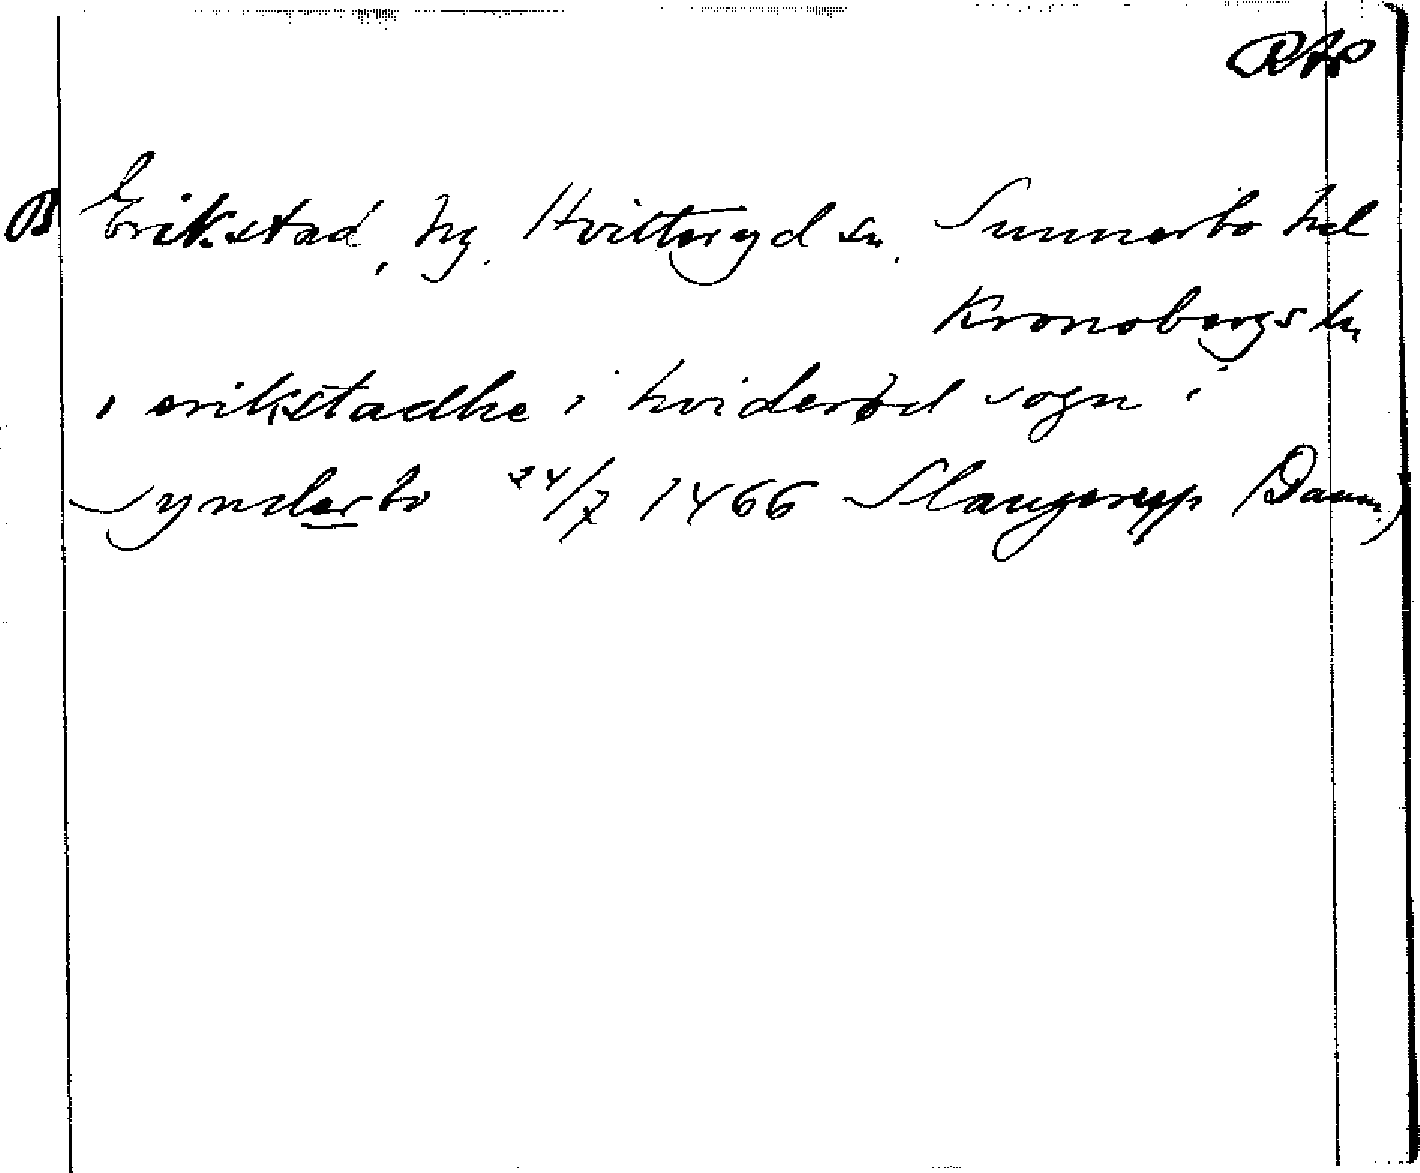 RAP
B Erikstad, hg. Hvitteryd sn. Sunnerbo hd
Kronobergs ln
i erikstadhe i hviderød sogn i
Synderbo 24/7 1466 Slangerup (Danm.)